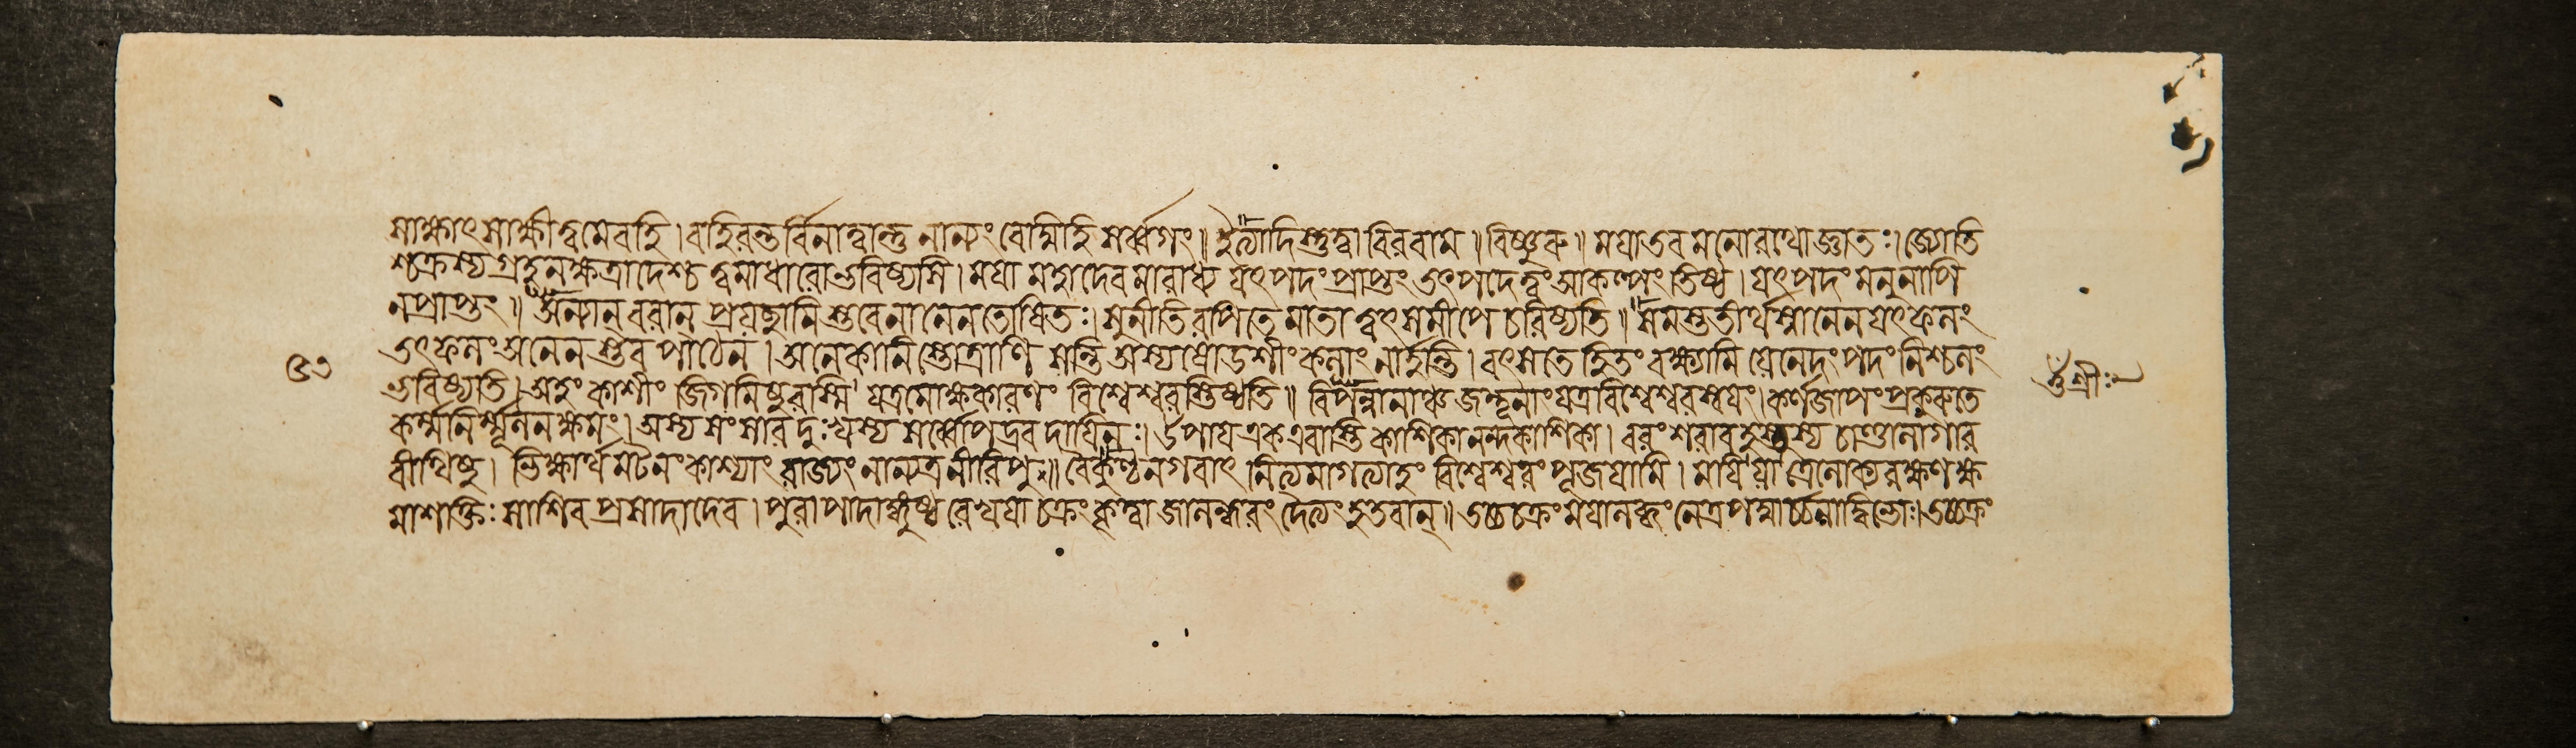 সাক্ষাৎ সাক্ষী ত্বমেবহি । বহিরন্তর্বিনাত্বান্তু নান্যং বেদ্মিহি সর্ব্বগং ॥ ইত্যাদিস্তুত্বা বিররাম ॥ বিষ্ণুরু ॥ ময়াতব মনোরথোজ্ঞাতঃ । জ্যোতি
শ্চক্রস্য গ্রহনক্ষত্রাদেশ্চ ত্বমাধারোভবিষ্যসি । ময়া মহাদেবমারাধ্য যৎপদংপ্রাপ্তং তৎপদেত্বং আকল্পং তিষ্ঠ । যৎপদং মনুনাপি
নপ্রাপ্তং ॥ অন্যান্ বরান্ প্রযচ্ছামি স্তবেনানেনতোষিতঃ । সুনীতিরপিতে মাতা ত্বৎসমীপে চরিষ্যতি ॥ সমস্ততীর্থস্নানেন যৎফলং
তৎফলং অনেন স্তব পাঠেন । অনেকানি স্তোত্রাণি সন্তি অস্যষোড়শীং কলাং নার্হন্তি । বৎসতে হিতং বক্ষ্যামি যেনেদং পদং নিশ্চলং
ভবিষ্যতি । অহং কাশীং জিগমিষুরস্মি যত্রমোক্ষকারণং বিশ্বেশ্বরস্তিষ্ঠতি ॥ বিপন্নানাঞ্চ জন্তূনাং যত্রবিশ্বেশ্বরস্বয়ং । কর্ণজাপং প্রকুরুতে
কর্ম্মনির্ম্মূলনক্ষমং । অস্য সংসার দুঃখস্য সর্ব্বোপদ্রব দায়িনঃ । উপায় একএবাস্তি কাশিকানন্দকাশিকা । বরং শরাবহস্তস্য চাণ্ডালাগার
বীথিষু । ভিক্ষার্থমটনং কাশ্যাং রাজ্যং নান্যত্র নীরিপু ॥ বৈকুণ্ঠনগরাৎ নিত্যমাগত্যাহং বিশ্বেশ্বরং পূজয়ামি । ময়ি যা ত্রৈলোক্যরক্ষণক্ষ
মাশক্তিঃ সাশিব প্রসাদাদেব । পুরা পাদাঙ্গুষ্ঠ রেখয়া চক্রং কৃত্বা জালন্ধরং দৈত্যং হতবান্ ॥ তচ্চচক্রং ময়ালব্ধং নেত্রপদ্মার্চ্চনাদ্বিভোঃ । তচ্চক্রং
৩১
শ্রীঃ